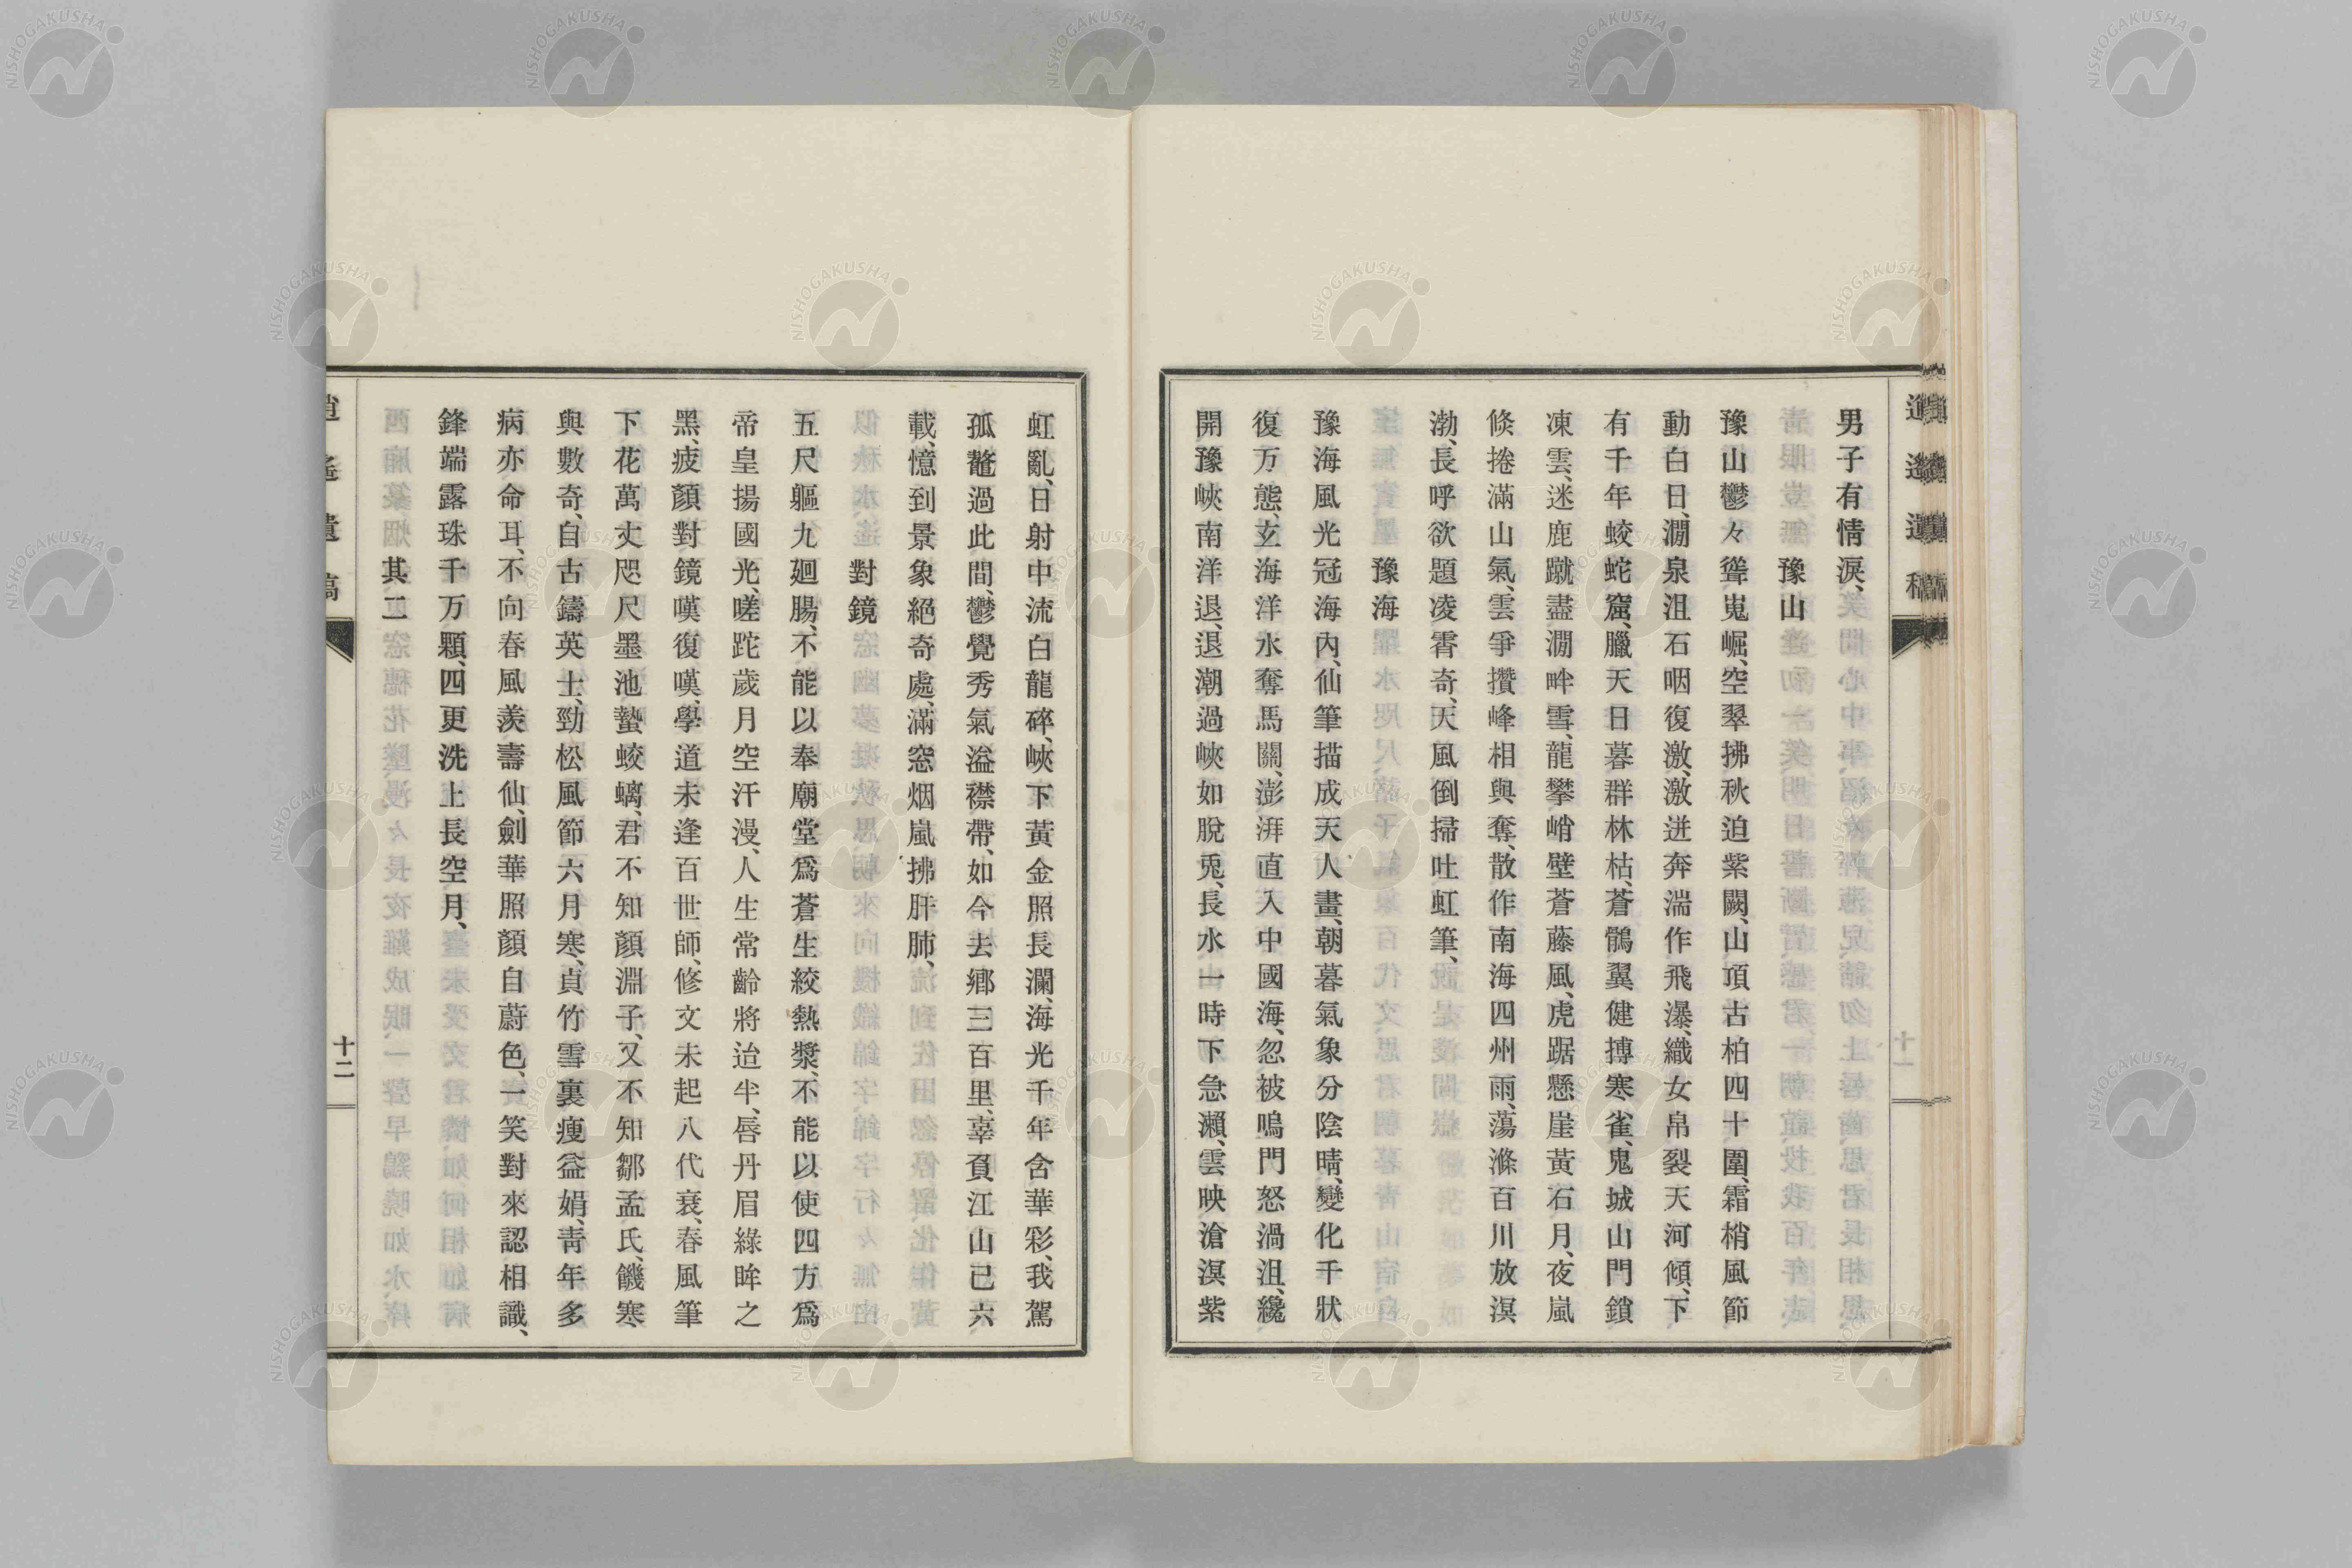 男子有情淚、
豫山
豫山鬱々聳嵬崛、空翠拂秋迫紫闕、山頂古柏四十圍、霜梢風節
動白日、澗泉沮石咽復激、激迸奔湍作飛瀑、織女帛裂天河傾、下
有千年蛟蛇窟、臘天日暮群林枯、蒼鶻翼健搏寒雀、鬼城山門鎖
凍雲、迷鹿蹴盡澗畔雪、龍攀峭壁蒼藤風、虎踞懸崖黃石月、夜嵐
倏捲滿山氣、雲爭攢峰相與奪、散作南海四州雨、蕩滌百川放溟
渤、長呼欲題凌霄奇、天風倒掃吐虹筆、
豫海
豫海風光冠海內、仙筆描成天人畫、朝暮氣象分陰晴、變化千狀
復万態、玄海洋水奪馬關、澎湃直入中國海、忽被鳴門怒渦沮、纔
開豫峽南洋退、退潮過峽如脫兎、長水一時下急瀨、雲映滄溟紫
虹亂、日射中流白龍碎、峽下黃金照長瀾、海光千年含華彩、我駕
孤鼇過此間、鬱覺秀氣溢襟帶、如今去鄉三百里、辜負江山已六
載、憶到景象絕奇處、滿窓烟嵐拂肝肺、
對鏡
五尺軀九廻腸、不能以奉廟堂爲蒼生絞熱漿、不能以使四方爲
帝皇揚國光、嗟跎歲月空汗漫、人生常齡將迨半、唇丹眉綠眸之
黑、疲顏對鏡嘆復嘆、學道未逢百世師、修文未起八代衰、春風筆
下花萬丈、咫尺墨池蟄蛟螭、君不知顏淵子、又不知鄒孟氏、饑寒
與數奇、自古鑄英士、勁松風節六月寒、貞竹雪裏瘦益娟、靑年多
病亦命耳、不向春風羨壽仙、劍華照顏自蔚色、一笑對來認相識、
鋒端露珠千万顆、四更洗上長空月、
其二
逍遙遺稿
十二